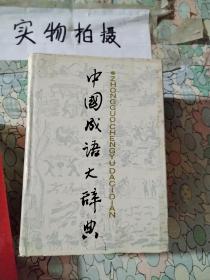 实物拍摄
中國成语大辞典
ZHONGGUOCHENGYU DACIDIAN